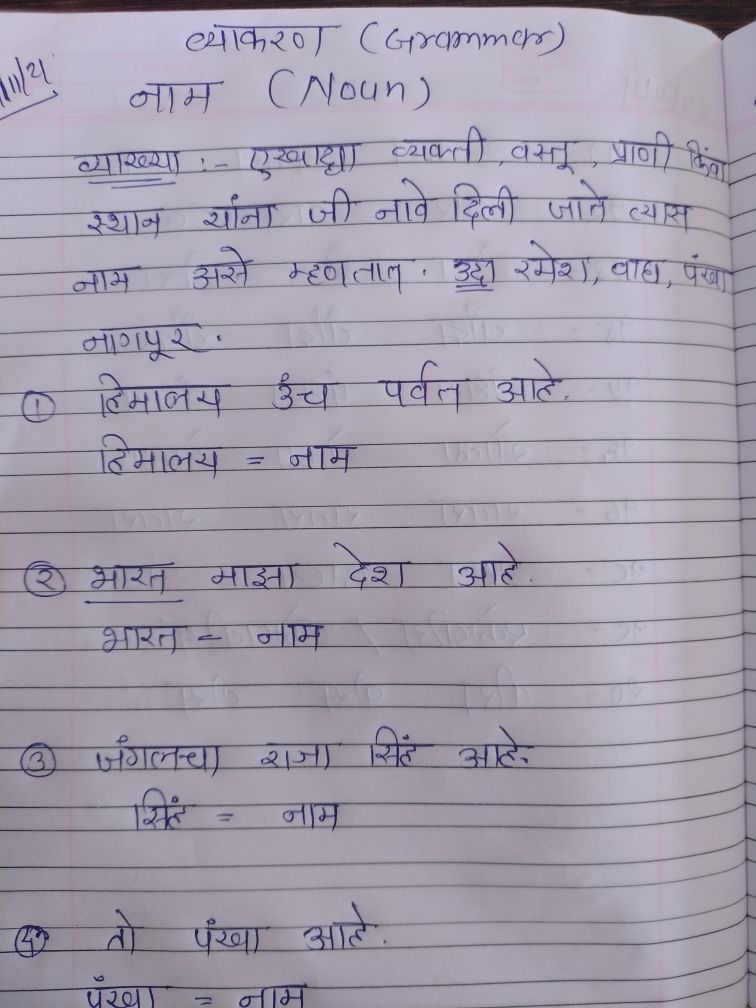 व्याकरण (Grammar)
नाम (Noun)
व्याख्या :- एखाद्या व्यक्ती, वस्तू, प्राणी किंवा
स्थान यांना जी नावे दिली जाते त्यास
नाम असे म्हणतात. उदा रमेश, वाघ, पंखा
नागपूर.
① हिमालय उंच पर्वत आहे.
हिमालय = नाम
② भारत माझा देश आहे.
भारत = नाम
③ जंगलचा राजा सिंहं आहे.
सिंहं = नाम
④ तो पंखा आहे.
पंखा = नाम